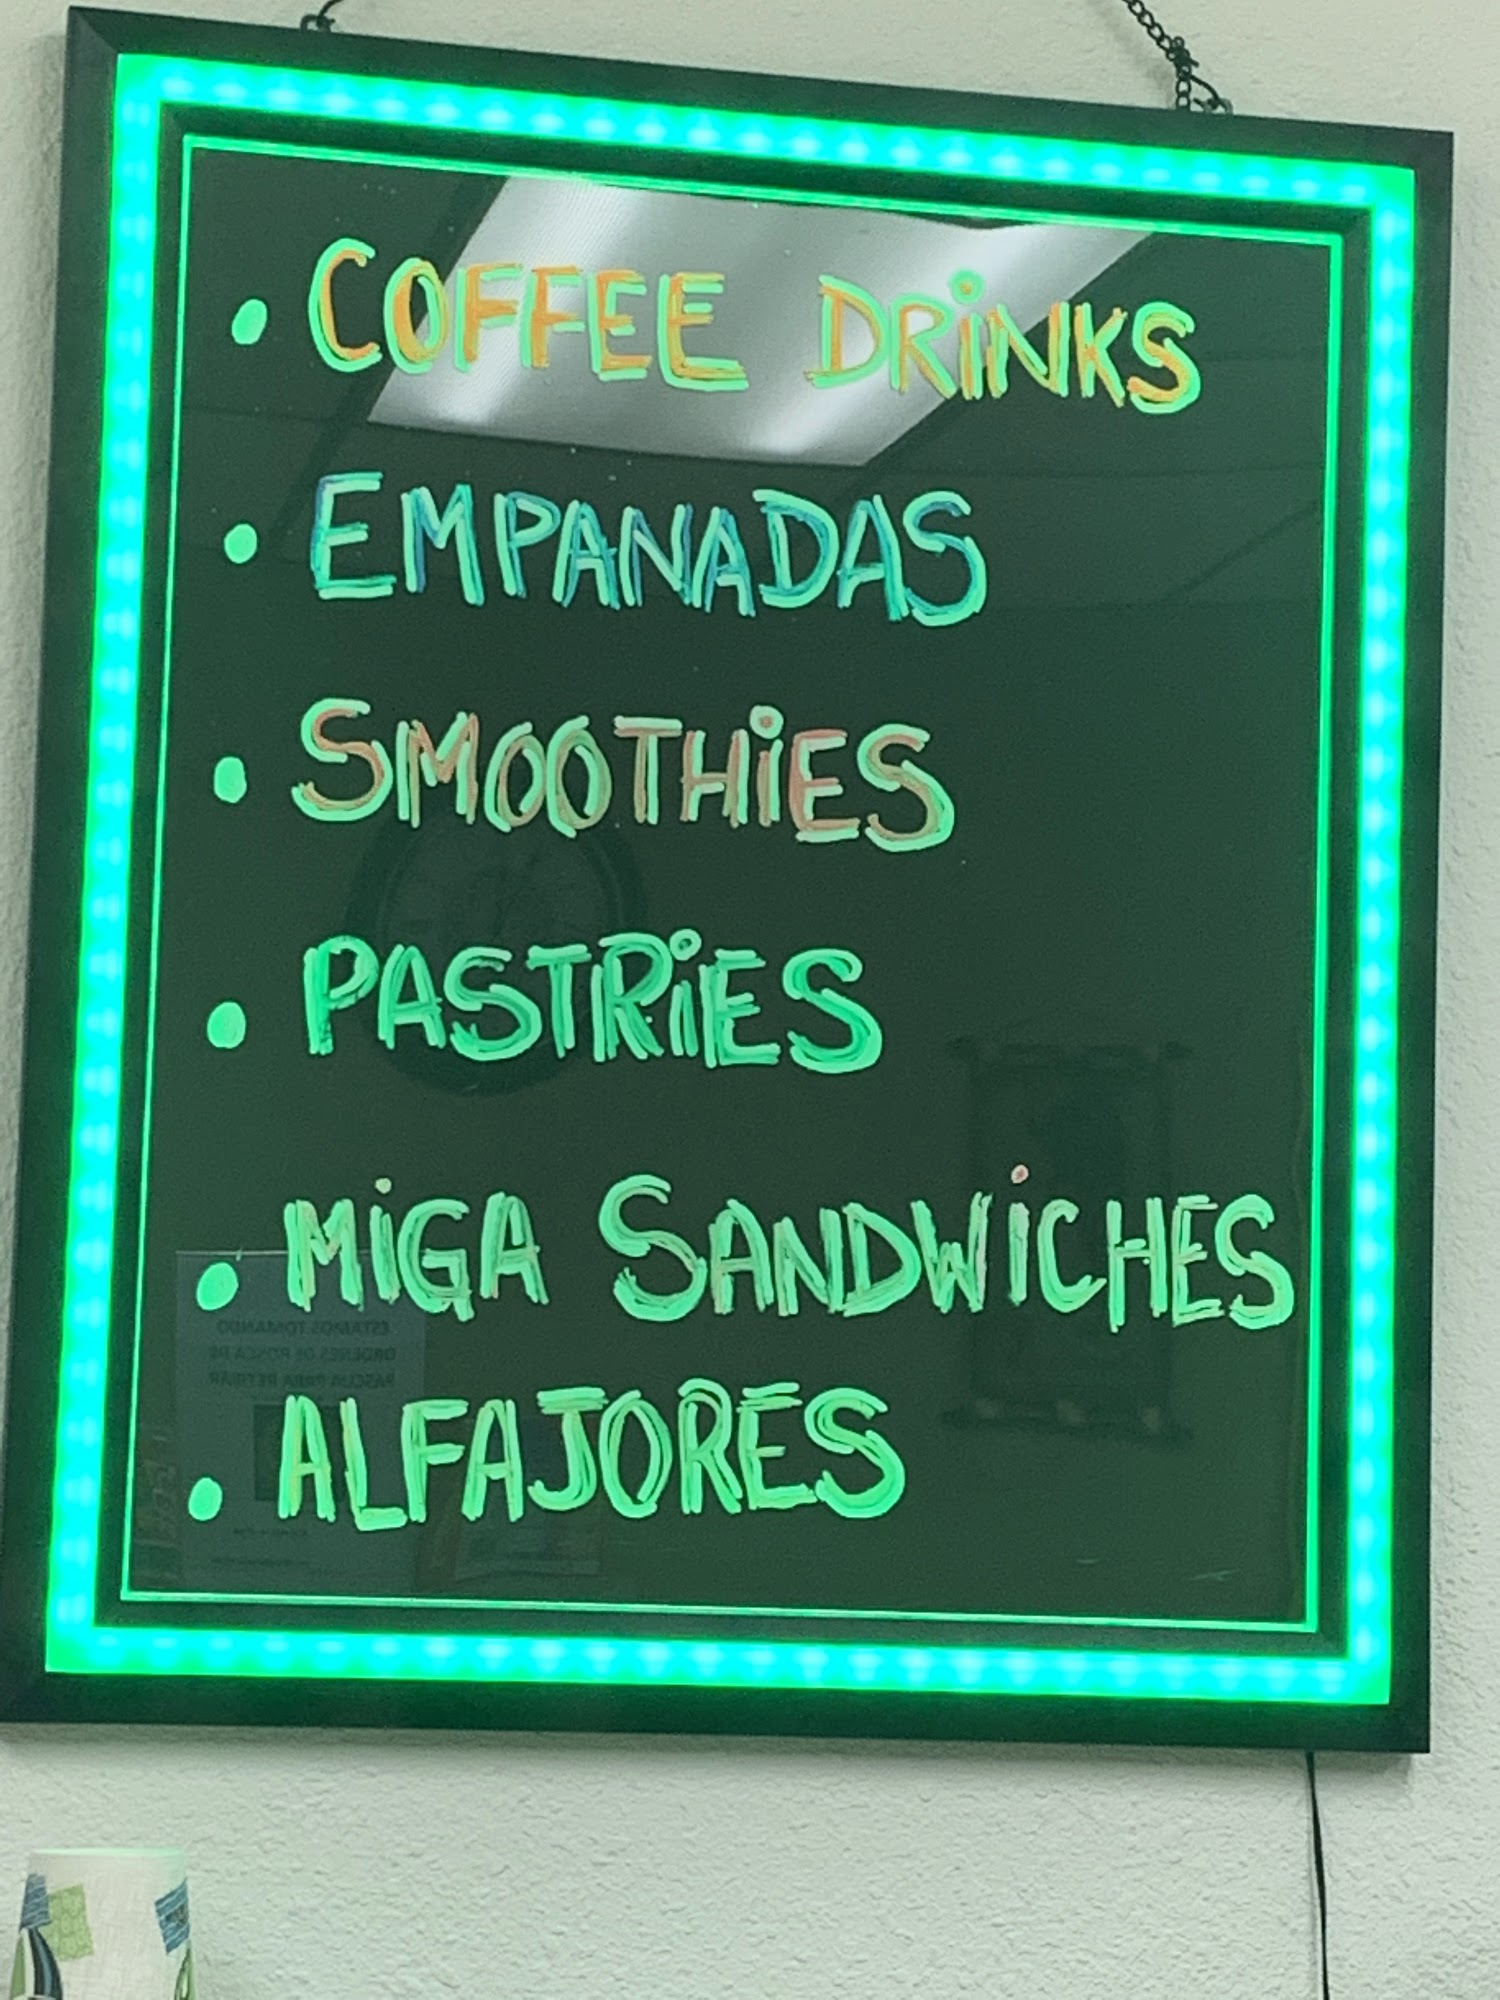 • COFFEE DRiNKS
• EMPANADAS
• SMOOTHiES
• PASTRiES
• MiGA SANDWiCHES
• ALFAJORES
ESTAMOS TOMANDO
ORDENES DE ROSCA DE
PASCUA PARA RETIRAR